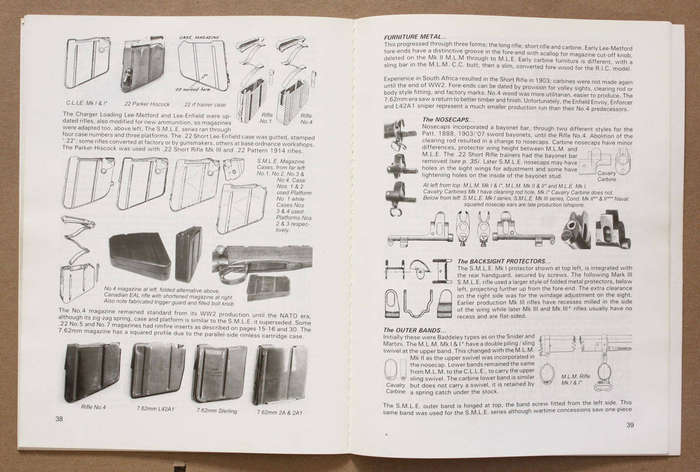 C.L.L.E. Mk I & I*
.22 Parker Hiscock
.22 if trainer case
Rifle No.1
Rifle No.4
The Charger Loading Lee-Metford and Lee-Enfield were up-
dated rifles, also modified for new ammunition, so magazines
were adapted too, above left. The S.M.L.E. series ran through
four case numbers and three platforms. The .22 Short Lee-Enfield case was gutted, stamped
".22"; some rifles converted at factory or by gunsmaiters, others at base ordnance workshops.
The Parker Hiscock was used with .22 Short Rifle Mk III and .22 Pattern 1914 rifles.
S.M.L.E. Magazine
Cases, from far left
No.1, No.2, No.3 &
No.4. Case
Nos. 1 & 2
used Platform
No 1 while
Cases Nos
3 & 4 used
Platforms Nos
2 & 3 respec-
tively.
No 4 magazine at left, folded alternative above.
Canadian EAL rifle with shortened magazine at right.
Also note fabricated trigger guard and filled bolt knob.
The No.4 magazine remained standard from its WW2 production until the NATO era,
although its zig-zag spring, case and platform is similar to the S.M.L.E. it superseded. Some
.22 No.5 and No.7 magazines had rimfire inserts as described on pages 15-16 and 30. The
7.62mm magazine has a squared profile due to the parallel-side rimless cartridge case.
Rifle No.4
7.62mm L42A1
7.62mm Sterling
7.62mm 2A & 2A1
38
FURNITURE METAL...
This progressed through three forms; the long rifle, short rifle and carbine. Early Lee-Metford
fore-ends have a distinctive groove in the fore-end with scallop for magazine cut-off knob;
deleted on the Mk II M.L.M through to M.L.E. Early carbine furniture is different, with a
sling bar in the M.L.M. C.C. butt, then a slim, converted fore wood for the R.I.C. model.
Experience in South Africa resulted in the Short Rifle in 1903; carbines were not made again
until the end of WW2. Fore-ends can be dated by provision for volley sights, clearing rod or
body style fitting, and factory marks. No.4 wood was more utilitarian, easier to produce. The
7.62mm era saw a return to better timber and finish. Unfortunately, the Enfield Envoy, Enforcer
and L42A1 sniper represent a much smaller production run than their No.4 predecessors.
The NOSECAPS...
Nosecaps incorporated a bayonet bar, through two different styles for the
Patt. 1888, 1903-'07 sword bayonets, until the Rifle No.4. Abolition of the
clearing rod resulted in a change to nosecaps. Carbine nosecaps have minor
differences, protector wing height between M.L.M. and
M.L.E. The .22 Short Rifle trainers had the bayonet bar
removed (see p. 35). Later S.M.L.E. nosecaps may have
holes in the sight wings for adjustment and some have
lightening holes on the inside of the bayonet stud.
Cavalry
Carbine
At left from top: M.L.M. Mk I & I*, M.L.M. Mk II & II* and M.L.E. Mk I.
Cavalry Carbines Mk I have clearing rod hole, Mk I* Cavalry Carbine does not.
Below from left: S.M.L.E. Mk I series, S.M.L.E. Mk III series, Cond. Mk II** & II*** Naval:
squared nosecap ears are late production (elsewre).
The BACKSIGHT PROTECTORS...
The S.M.L.E. Mk I protector shown at top left, is integrated with
the rear handguard, secured by screws. The following Mark III
S.M.L.E. rifle used a larger style of folded metal protectors, below
left, projecting further up from the fore end. The extra clearance
on the right side was for the windage adjustment on the sight.
Earlier production Mk III rifles have recesses milled in the side
of the wing while later Mk III and Mk III* rifles usually have no
recess and are flat-sided.
The OUTER BANDS...
Initially these were Baddeley types as on the Snider and
Martini. The M.L.M. Mk I & I* have a double piling / sling
swivel at the upper band. This changed with the M.L.M.
Mk II as the upper swivel was incorporated in
the nosecap. Lower bands remained the same
from M.L.M. to the C.L.L.E., to carry the upper
sling swivel. The carbine lower band is similar
but does not carry a swivel, it is retained by
a spring catch under the stock.
Cavalry
Carbine
M.L.M. Rifle
Mk I & I*
The S.M.L.E. outer band is hinged at top, the band screw fitted from the left side. This
same band was used for the S.M.L.E. series although wartime concessions saw one-piece
39